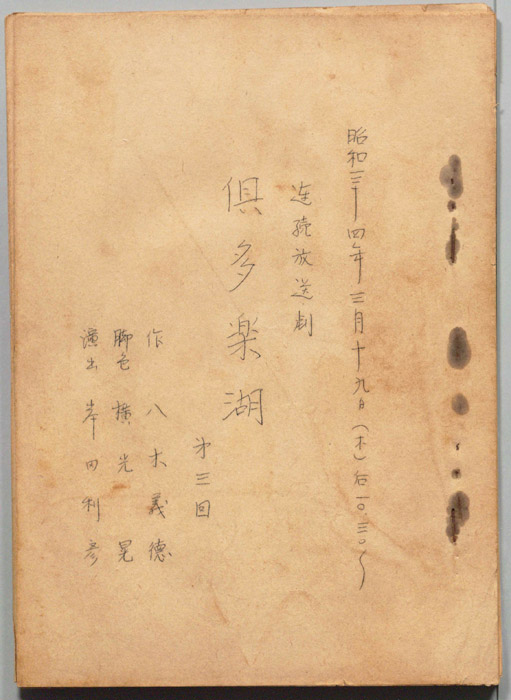 昭和三十四年三月十九日(木)后一〇.三〇〜
連続放送劇
倶多楽湖
第三回
作 八木義德
脚色 横光晃
演出 岸田利彦